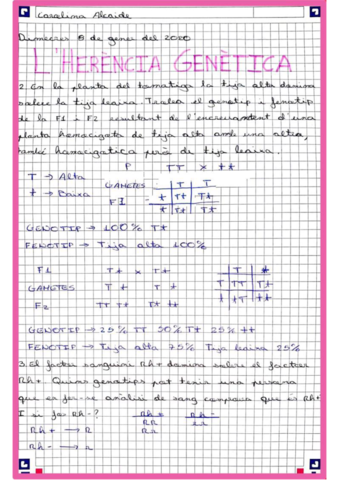 Carolina Alcaide
Dimecres 8 de gener del 2020
L'HERÈNCIA GENÈTICA
2. En la planta del tomatiga la tija alta domina
sobre la tija baixa. Troba el genotip i fenotip
de la F1 i F2 resultant de l'encreuament d'una
planta homozigota de tija alta amb una altra,
també homozigotica però de tija baixa.
P TT x tt
T → Alta
t → Baixa
GAMETES
T T
F1
t Tt Tt
t Tt Tt
GENOTIP → 100% Tt
FENOTIP → Tija alta 100%
F1 Tt x Tt
GAMETES T t T t
F2 TT Tt Tt tt
T t
T TT Tt
t tT tt
GENOTIP → 25% TT 50% Tt 25% tt
FENOTIP → Tija alta 75% Tija baixa 25%
3. El factor sanguini Rh+ domina sobre el factor
Rh+. Quins genotips pot tenir una persona
que es fer-se anàlisi de sang comprova que és Rh+
I si fos Rh-?
Rh+ Rh-
RR rr
Rr
Rh+ → R
Rh- → r